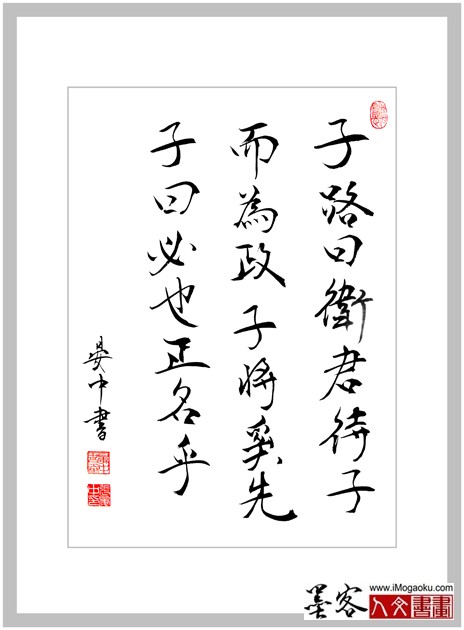 子路曰衛君待子
而為政子將奚先
子曰必也正名乎
晏中書
墨客
www.iMogaoku.com
人文書畫